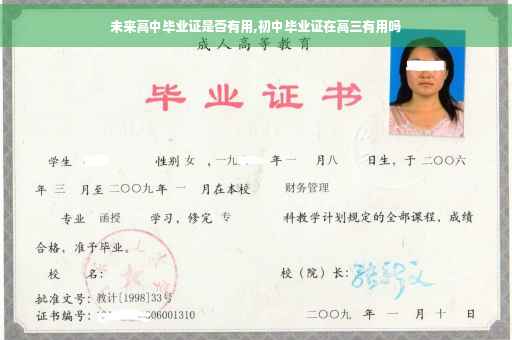 未来高中毕业证是否有用,初中毕业证在高三有用吗
成人高等教育
毕业证书
学生 性别 女 ,一九 年 一 月八 日生,于 二〇〇六
年 三 月至 二〇〇九 年 一 月在本校 财务管理
专业 函授 学习,修完 专 科教学计划规定的全部课程,成绩
合格,准予毕业。
校 名: 校(院)长:
批准文号:教计[1998]33号
证书编号: 06001310 二〇〇九 年 一 月 十 日